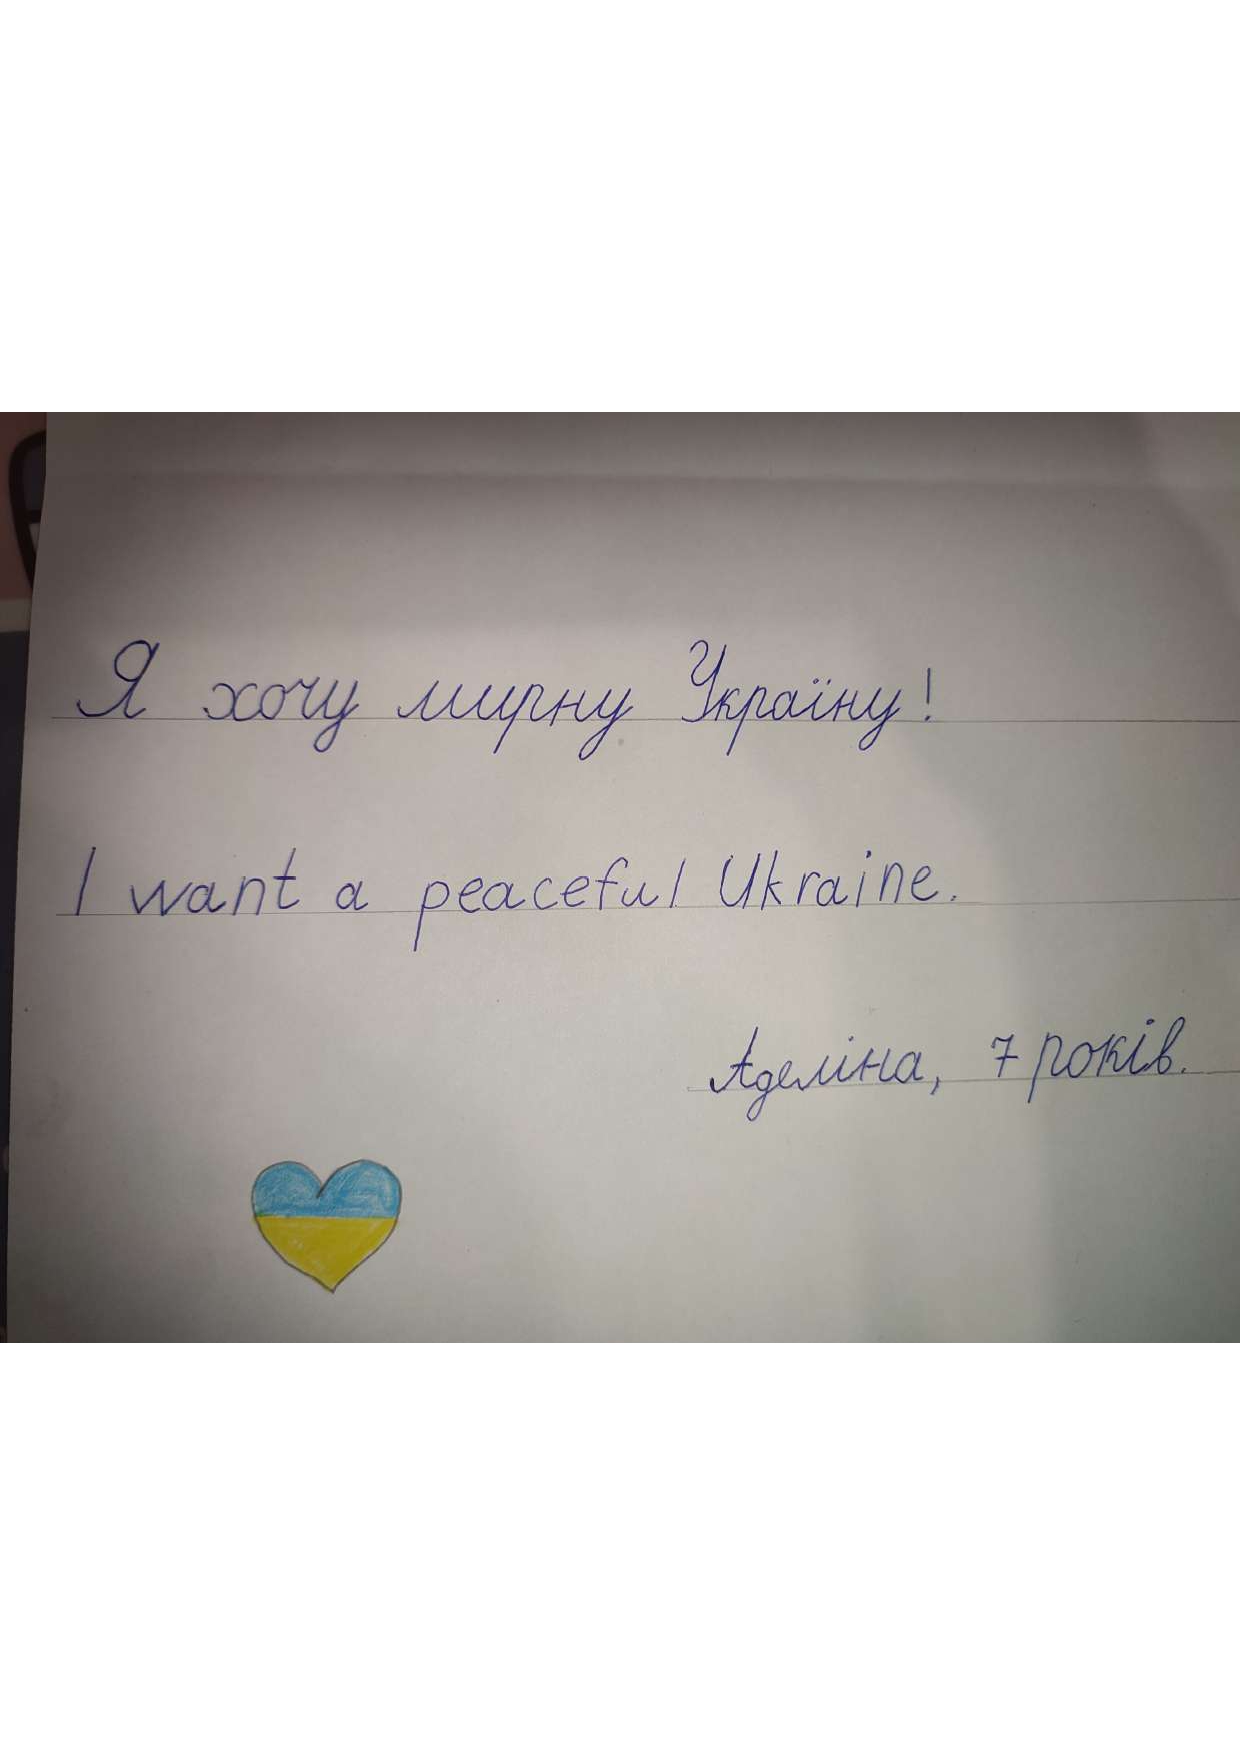 Я хочу мирну Україну!
I want a peaceful Ukraine.
Аделіна, 7 років.